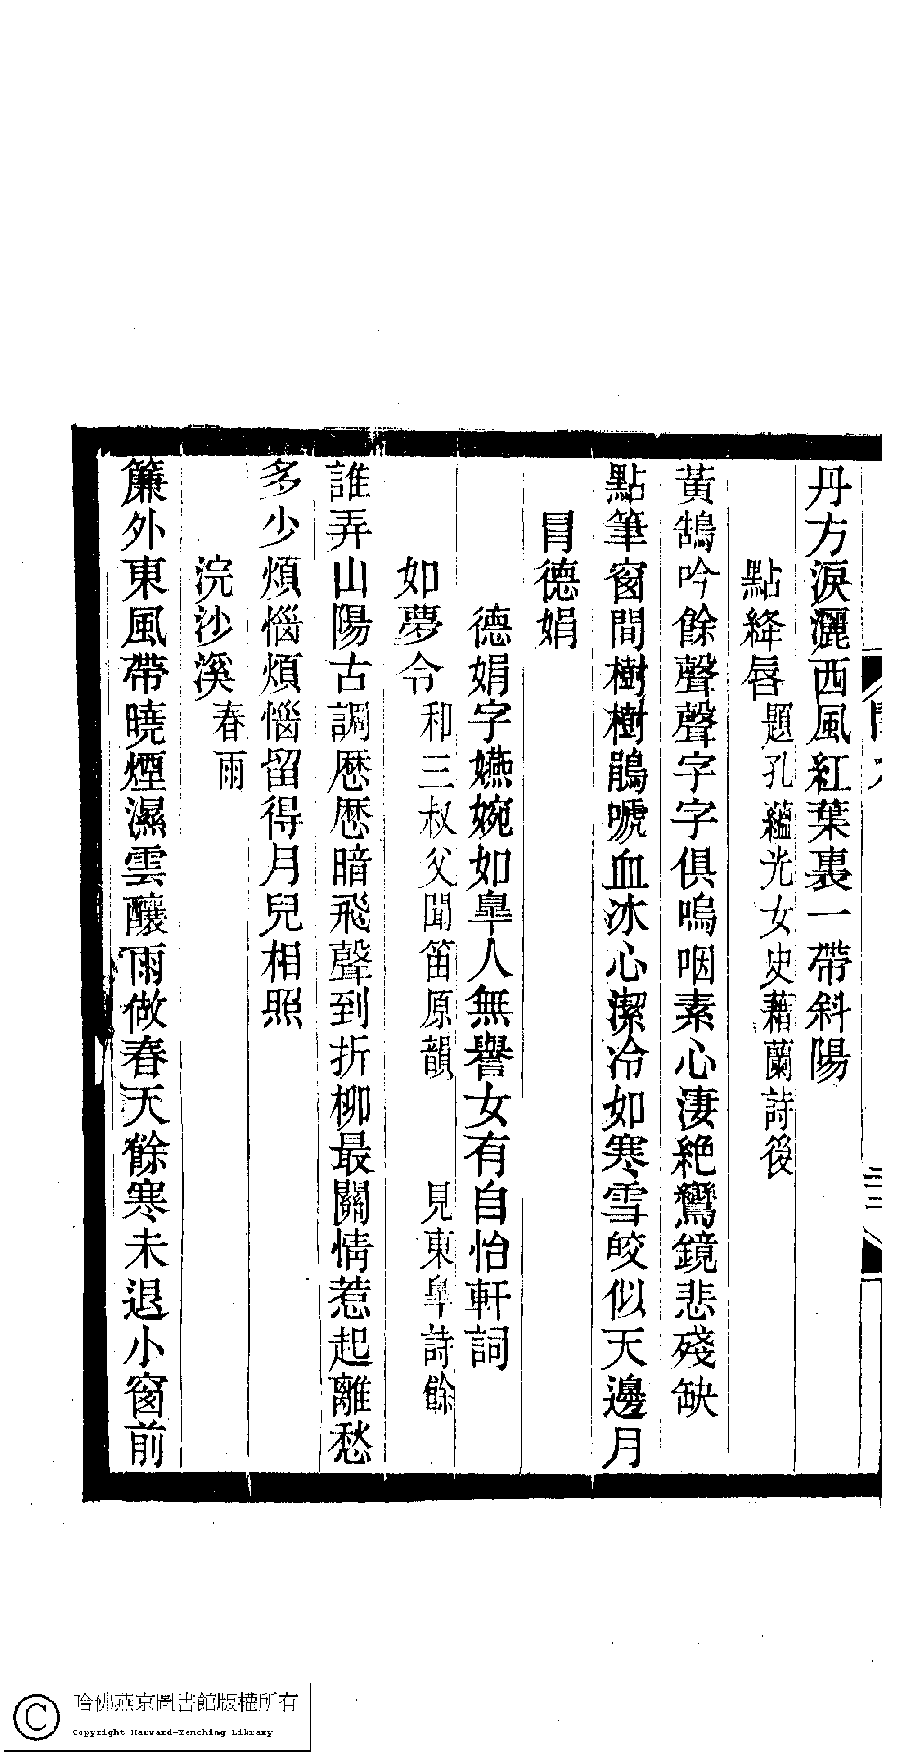 丹方淚灑西風紅葉裏一帶斜陽
點絳唇題孔蘊光女史藉蘭詩後
黃鵠吟餘聲聲字字俱嗚咽素心淒絶鸞鏡悲殘缺
點筆窗間樹樹鵑嗁血冰心潔冷如寒雪皎似天邊月
冒德娟
德娟字嬿婉如臯人無譽女有自怡軒詞
如夢令和三叔父聞笛原韻 見東臯詩餘
誰弄山陽古調歷歷暗飛聲到折柳最關情惹起離愁
多少煩惱煩惱留得月兒相照
浣沙溪春雨
簾外東風帶曉煙濕雲釀雨做春天餘寒未退小窗前
二三
哈佛燕京圖書館版權所有
Copyright Harvard-Yenching Library